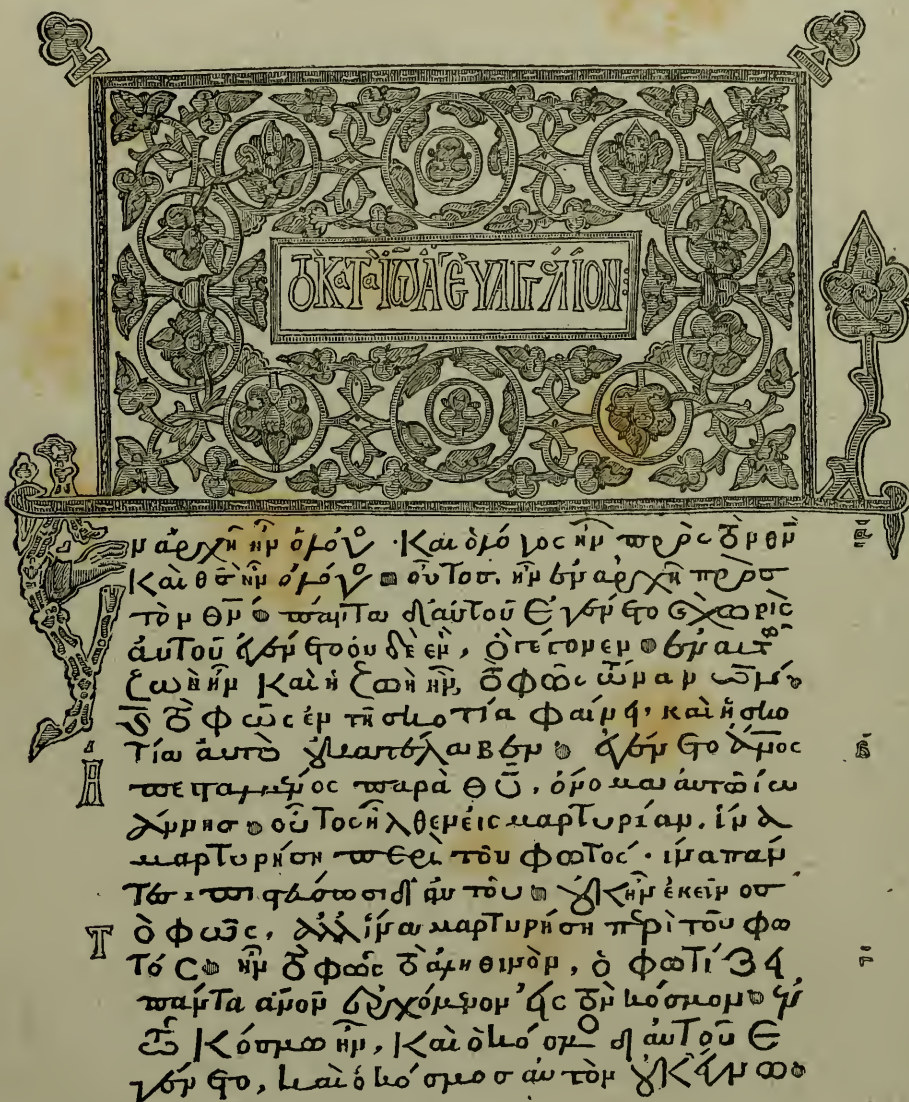 ΤὸΚατὰ ἸῶΑ ΕΥΑΓΓΈΛΙΟΝ:
Ἐν ἀρχῆ ἦν ὁ λόγος · Καὶ ὁ λόγος ἦν πρὸς τὸν θν̄ ᾱ
Καὶ θς̄ ἦν ὁ λόγος οὗτος. ἦν ἐν ἀρχῆ πρὸς
τὸν θν̄ πάντα δι' αὐτοῦ ἐγένετο ϗ χωρὶς
αὐτοῦ ἐγένετο οὐδὲ ἓν, ὃ γέγονεν ἐν αὐτῶ
ζωὴ ἦν Καὶ ἡ ζωὴ ἦν, τὸ φῶς τῶν ανων̄
ϗ τὸ φῶς ἐν τῆ σκοτία φαίνει· καὶ ἡ σκο
τία αὐτὸ οὐ κατέλαβεν ἐγένετο ἄνος̄ β̄
Ἀπεσταλμένος παρὰ Θῦ, ὄνομα αὐτῶ ἰω
άννης οὗτος ἦλθεν εἰς μαρτυρίαν. ἵνα
μαρτυρήση περὶ τοῦ φωτός · ἵνα παν
τες πιστεύσωσι δι' αὐτοῦ οὐκ ἦν ἐκεῖνος
Τὸ φῶς, ἀλλ' ἵνα μαρτυρήση περὶ τοῦ φω
τός ἦν τὸ φῶς τὸ ἀληθινὸν, ὃ φωτίζει γ̄
πάντα ανον̄ ἐρχόμενον εἰς τὸν κόσμον ἐν
τῶ Κόσμω ἦν, Καὶ ὁ κόσμος δι' αὐτοῦ ἐ
γένετο, καὶ ὁ κόσμος αὐτὸν οὐκ ἔγνω